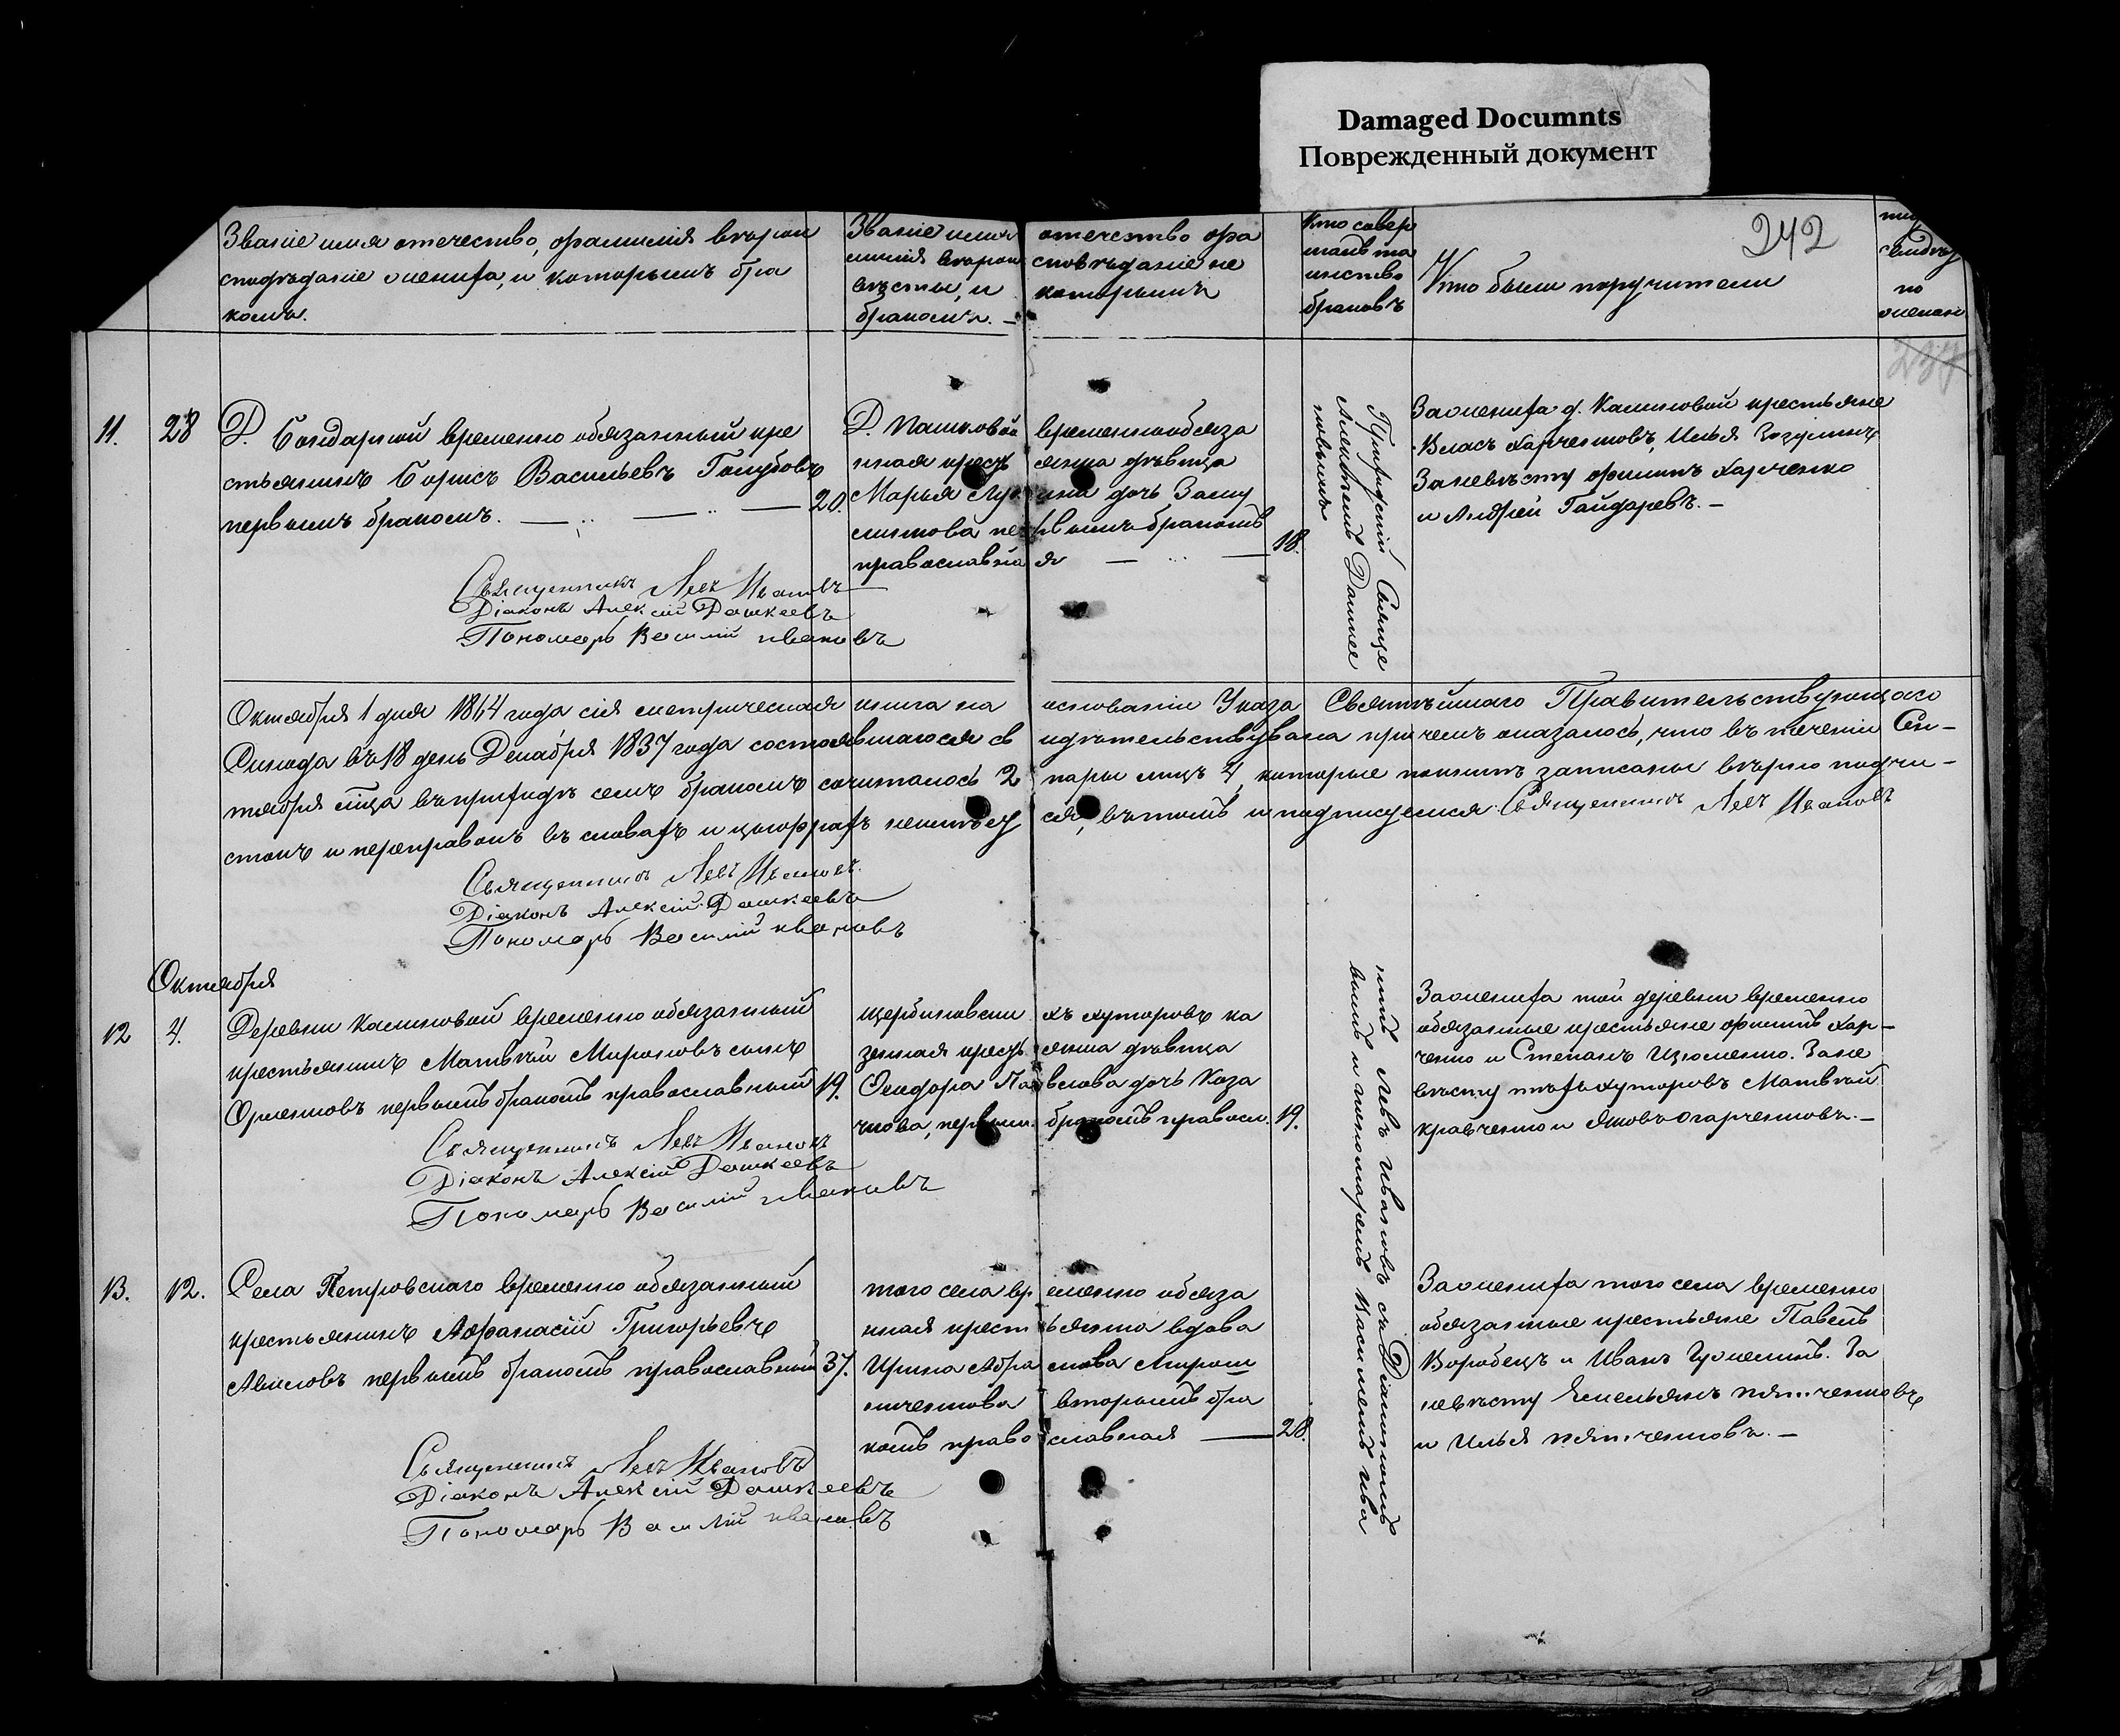 Damaged Documnts
Поврежденный документ
242
Званіе имя отечество, фамилія вѣроис
повѣданіе жениха, и которымъ бра
комъ.
Званіе имя отечество фа
милія вѣроисповѣданіе не
вѣсты, и которымъ
бракомъ. —
Кто совер
шалъ та
инство
браковъ
Кто были поручители
по
желан
237
11. 28
Д. Бондарной временно обязанный кре
стьянинъ Борисъ Васильевъ Голубовъ
первымъ бракомъ. — 20.
Д. Калиновой временнообяза
нная крестьянка дѣвица
Марья дочь
первымъ бракомъ
православная — 18.
Приходскій Священ
Дашкее
вымъ
Зажениха д. Калиновой крестьяне
Власъ Харченковъ, Илья
Заневѣсту Филипъ Харченко
и Андрей Гайдаревъ. —
Священникъ Левъ Ивановъ
Діаконъ Алексій Дашкеевъ
Пономарь Василій Ивановъ
Октября 1 дня 1864 года сія метрическая книга на основаніи Указа Святѣйшаго Правительствующаго
Синода въ 18 день Декабря 1837 года состоявшагося свидѣтельствувана причемъ оказалось, что въ теченіи Сен-
тября мѣсяца въ приходѣ семъ бракомъ сочиталось 2 пары лицъ 4, которые записаны вѣрно подчи-
стокъ и переправокъ въ словахъ и цыфрахъ неимѣется, въ томъ и подписуемся Священникъ Левъ Ивановъ
Священникъ Левъ Ивановъ
Діаконъ Алексій Дашкеевъ
Пономарь Василій Ивановъ
Октября
12 4.
Деревни Калиновой временно обязанный
крестьянинъ Матвѣй Мироновъ сынъ
первымъ бракомъ православный 19.
Щербиновскихъ хуторовъ ка
зенная крестьянка дѣвица
Феодора Павлова дочь Коза
чкова, первымъ бракомъ правосл. 19.
никъ Левъ Ивановъ съ Діакономъ
вымъ и пономаремъ Василіемъ Ива
Зажениха той деревни временно
обязанные крестьяне Филипъ Хар-
ченко и Степанъ Изюменко. Зане
вѣсту тѣхъ хуторовъ Матвѣй
Кравченко и Яковъ Огарченковъ. —
Священникъ Левъ Ивановъ
Діаконъ Алексій Дашкеевъ
Пономарь Василій Ивановъ
13. 12.
Села Петровскаго временно обязанный
крестьянинъ Афанасій Григорьевъ
первымъ бракомъ православный 37.
того села временно обяза
нная крестьянка вдова
Ирина Абрамова Мирош
ниченкова вторымъ бра
комъ православная — 28.
Зажениха того села временно
обязанные крестьяне Павелъ
Воробецъ и Иванъ За
невѣсту Емельянъ
и Илья
Священникъ Левъ Ивановъ
Діаконъ Алексій Дашкеевъ
Пономарь Василій Ивановъ